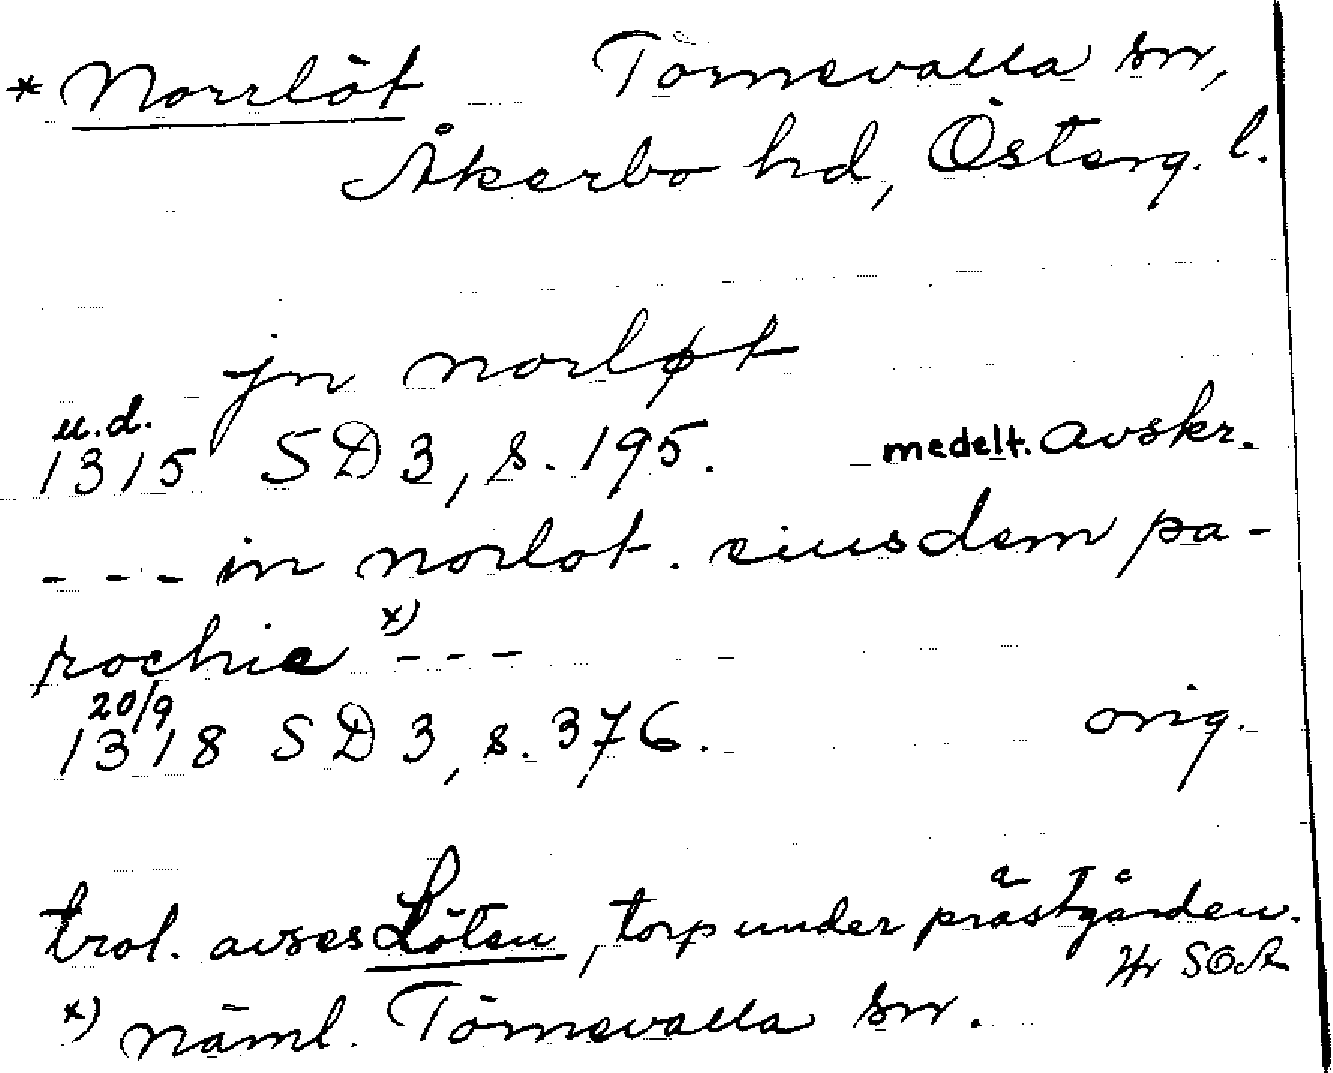 * Norrlöt Törnevalla sn,
Åkerbo hd, Österg. l.
jn norløt
u.d.
1315 SD 3, s. 195. medelt. avskr.
- - - in norlot. eiusdem pa-
rochie x) - - -
20/9
1318 SD 3, s. 376. orig.
trol. avses Löten, torp under prästgården.
x) näml. Törnevalla sn.